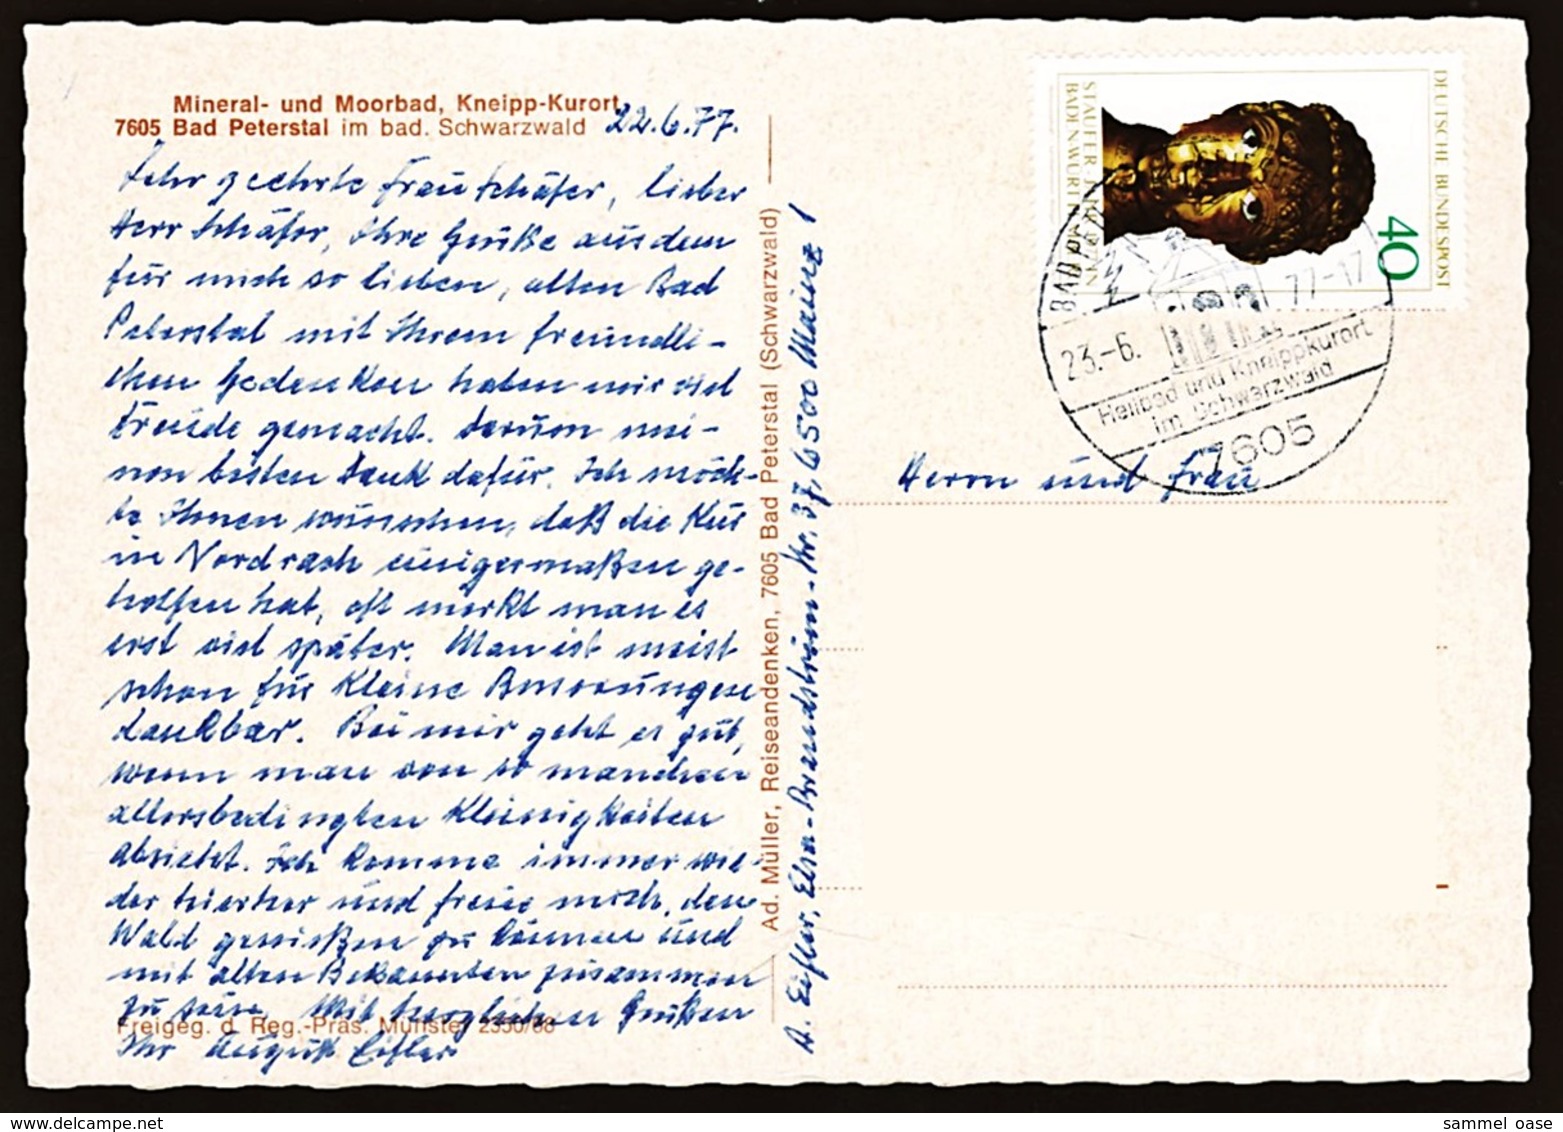 Mineral- und Moorbad, Kneipp-Kurort
7605 Bad Peterstal im bad. Schwarzwald
22.6.77.
Sehr geehrte Frau Schäfer, lieber
Herr Schäfer, Ihre Grüße aus dem
für mich so lieben, alten Bad
Peterstal mit Ihrem freundli-
chen Gedenken haben mir viel
Freude gemacht. Darum mei-
nen besten Dank dafür. Ich möch-
te Ihnen wünschen, daß die Kur
in Nordrach einigermaßen ge-
holfen hat, oft merkt man es
erst viel später. Man ist meist
schon für kleine Besserungen
dankbar. Bei mir geht es gut,
wenn man von so manchen
altersbedingten Kleinigkeiten
absieht. Ich komme immer wie-
der hierher und freue mich, den
Wald genießen zu können und
mit alten Bekannten zusammen
zu sein. Mit herzlichen Grüßen
Ihr August Eifler
Freigeg. d. Reg.-Präs. Münster 2350/68
Ad. Müller, Reiseandenken, 7605 Bad Peterstal (Schwarzwald)
A. Eifler, Elsa-Brandström-Str. 37, 6500 Mainz 1
DEUTSCHE BUNDESPOST
40
STAUFER-JAHR 1977 IN
BADEN-WÜRTTEMBERG
BAD
23.-6. 77-17
Heilbad und Kneippkurort
im Schwarzwald
7605
Herrn und Frau
sammel_oase